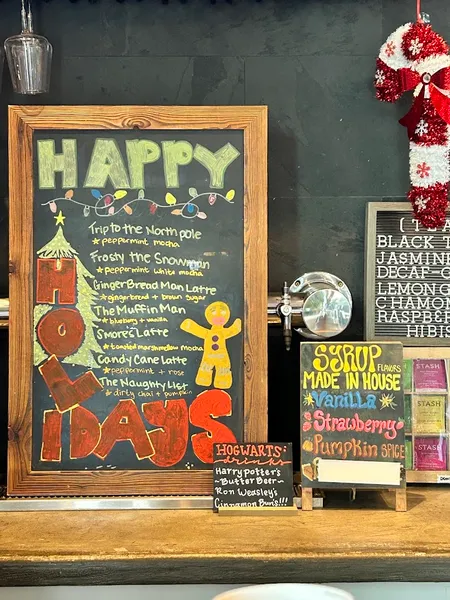 HAPPY
HOLIDAYS
Trip to the North pole
★ peppermint mocha
Frosty the Snowman
★ peppermint white mocha
GingerBread Man Latte
★ gingerbread + brown sugar
The Muffin Man
★ blueberry + vanilla
S'mores Latte
★ toasted marshmellow mocha
Candy Cane Latte
★ peppermint + rose
The Naughty List
★ dirty chai + pumpkin
HOGWARTS
drinks
Harry Potter's
~Butter Beer~
Ron Weasley's
Cinnamon Buns!!!
SYRUP FLAVORS
MADE IN HOUSE
Vanilla
Strawberry
Pumpkin SPICE
BLACK T
JASMINE
DECAF-
LEMONG
CHAMOM
RASPBE
HIBIS
STASH
STASH
STASH